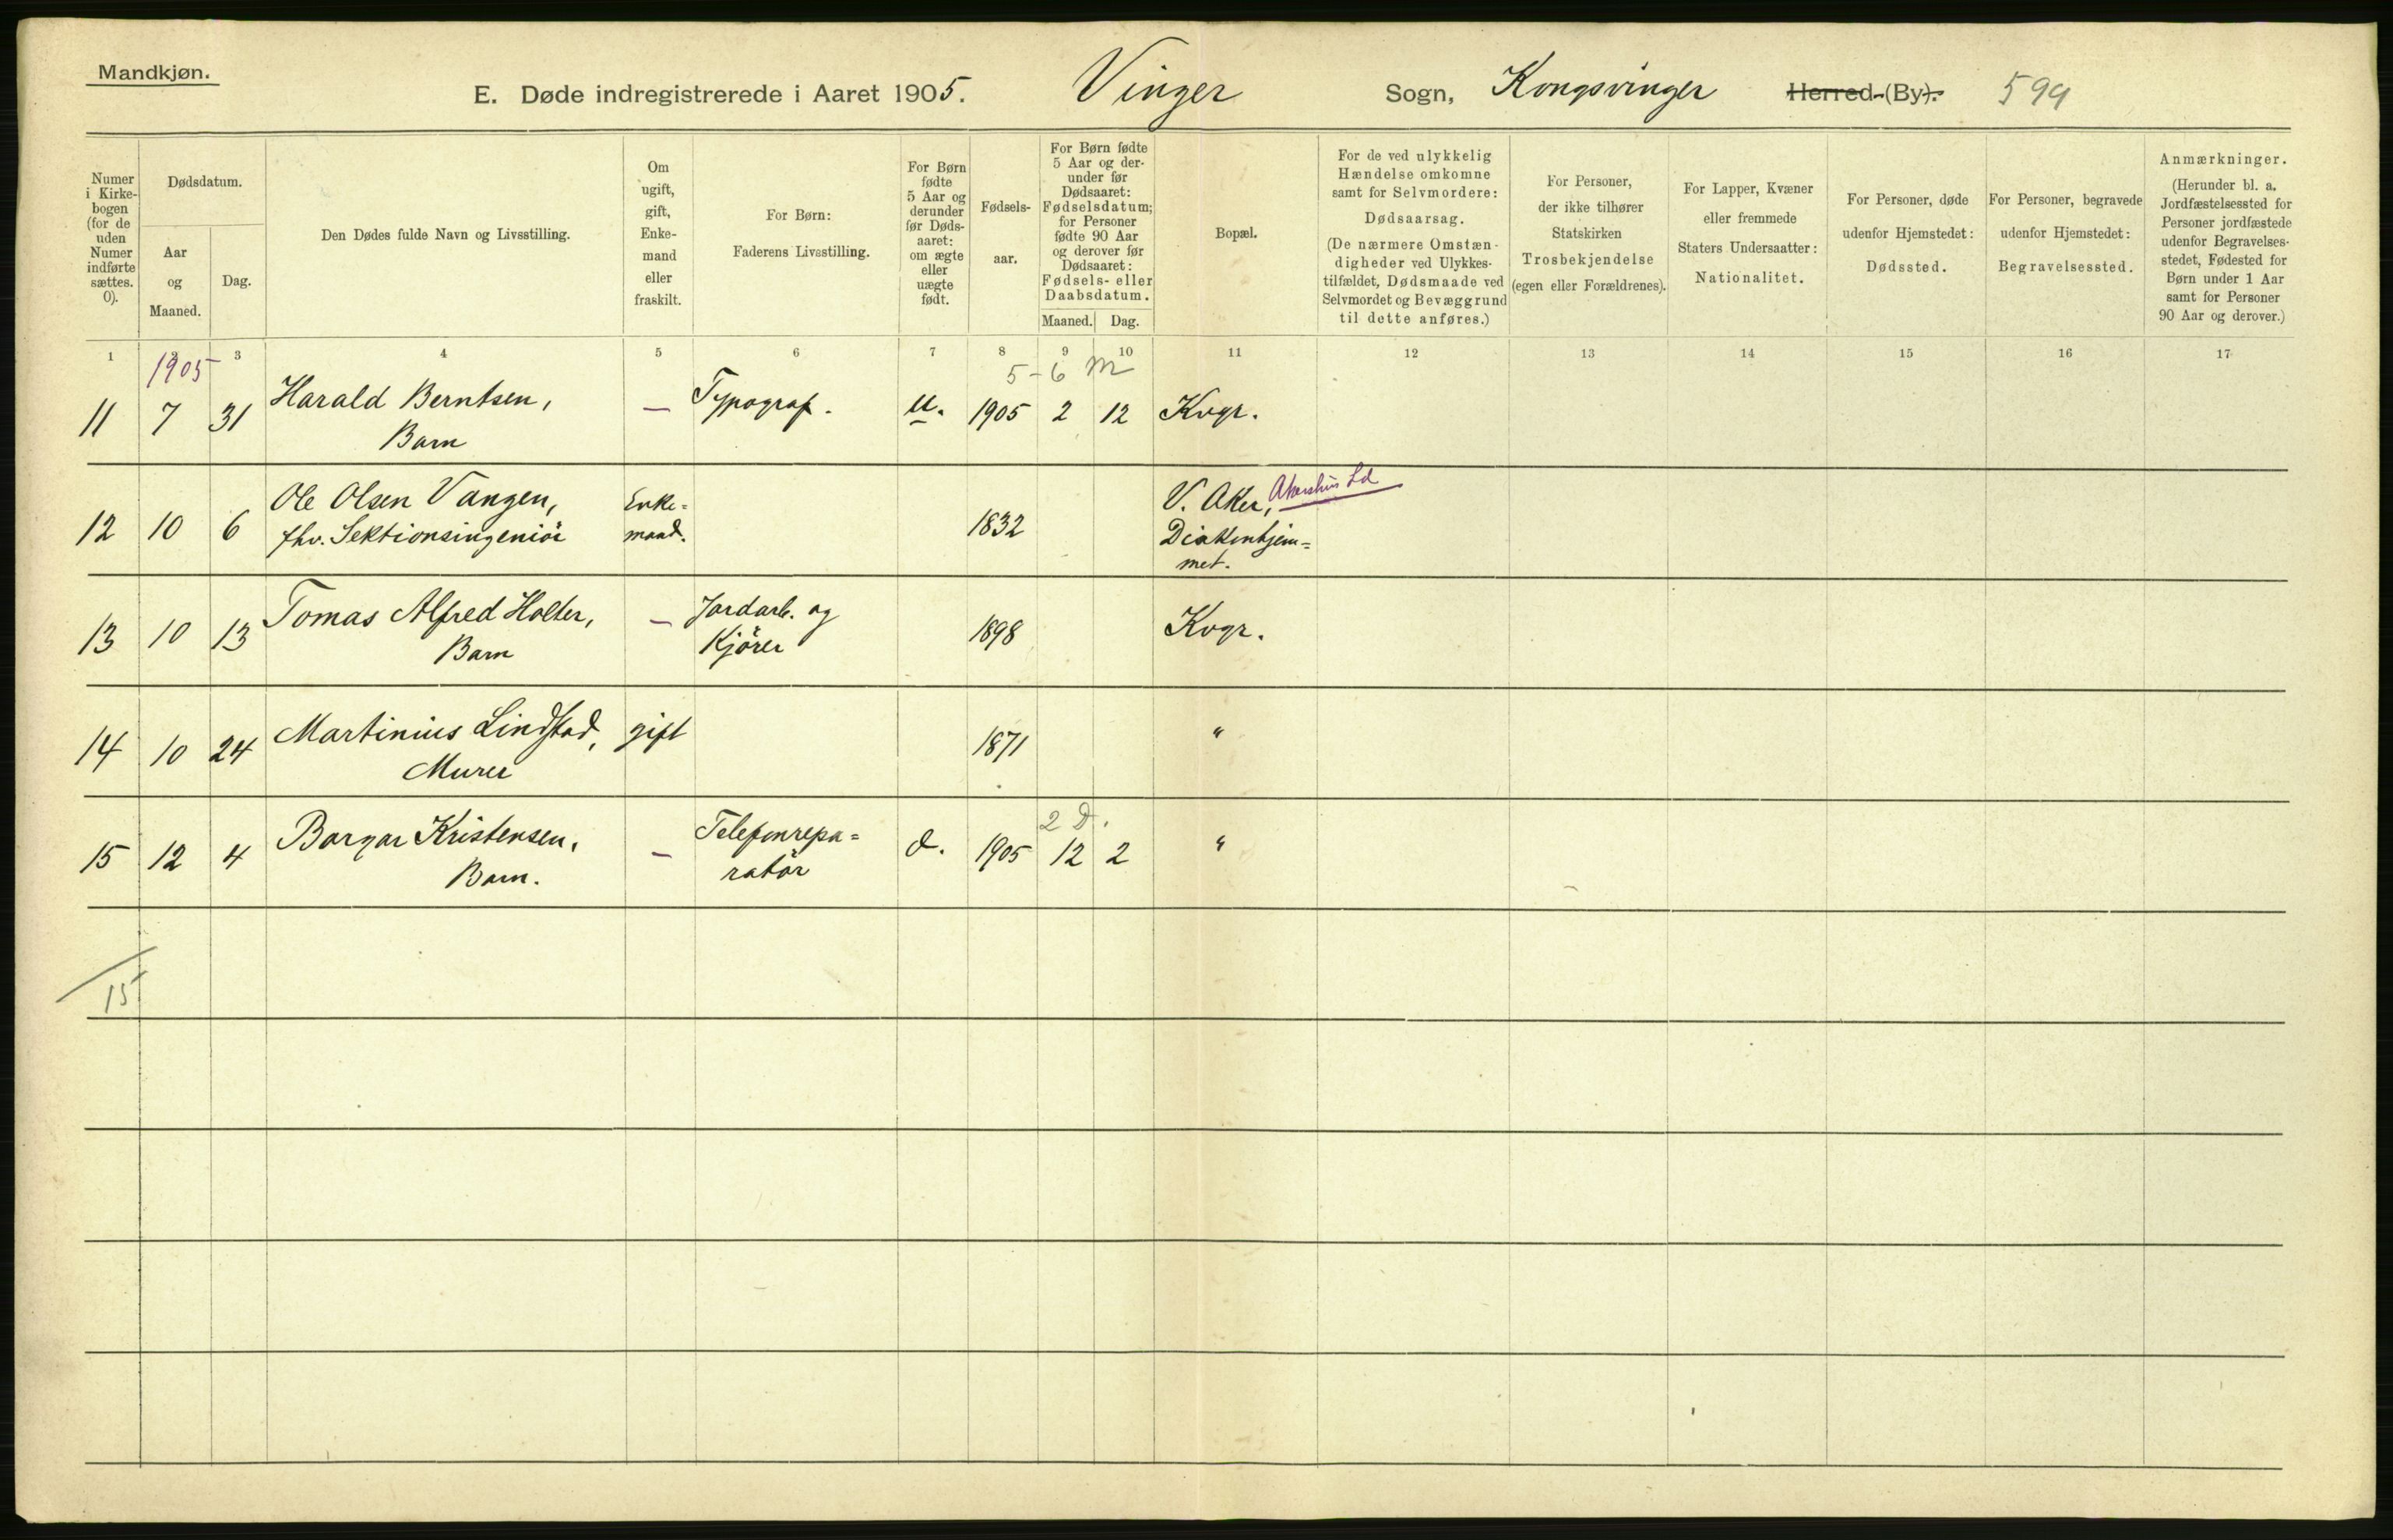 Mandkjøn.
E. Døde indregistrerede i Aaret 1905. Vinger Sogn, Kongsvinger Herred (By). 599
Numer i Kirkebogen (for de uden Numer indførte sættes. 0).
Dødsdatum.
Aar og Maaned.
Dag.
Den Dødes fulde Navn og Livsstilling.
Om ugift, gift, Enkemand eller fraskilt.
For Børn: Faderens Livsstilling.
For Børn fødte 5 Aar og derunder før Dødsaaret: om ægte eller uægte født.
Fødselsaar.
For Børn fødte 5 Aar og derunder før Dødsaaret: Fødselsdatum; for Personer fødte 90 Aar og derover før Dødsaaret: Fødsels- eller Daabsdatum.
Maaned. Dag.
Bopæl.
For de ved ulykkelig Hændelse omkomne samt for Selvmordere: Dødsaarsag. (De nærmere Omstændigheder ved Ulykkestilfældet, Dødsmaade ved Selvmordet og Bevæggrund til dette anføres.)
For Personer, der ikke tilhører Statskirken Trosbekjendelse (egen eller Forældrenes).
For Lapper, Kvæner eller fremmede Staters Undersaatter: Nationalitet.
For Personer, døde udenfor Hjemstedet: Dødssted.
For Personer, begravede udenfor Hjemstedet: Begravelsessted.
Anmærkninger. (Herunder bl. a. Jordfæstelsessted for Personer jordfæstede udenfor Begravelsesstedet, Fødested for Børn under 1 Aar samt for Personer 90 Aar og derover.)
1 2 3 4 5 6 7 8 9 10 11 12 13 14 15 16 17
1905 5-6 M
11 7 31 Harald Berntsen, — Typograf. u. 1905 2 12 Kvgr.
Barn
12 10 6 Ole Olsen Vangen, Enke= 1832 V. Aker, Akershus
fhv. Sektionsingeniör mand. Diakonhjem=
met.
13 10 13 Tomas Alfred Holter, — Jordarb. og 1898 Kvgr.
Barn Kjörer
14 10 24 Martinius Lindstad, gift 1871 "
Murer
2 D.
15 12 4 Borgar Kristensen, — Telefonrepa= d. 1905 12 2 "
Barn. ratör
15